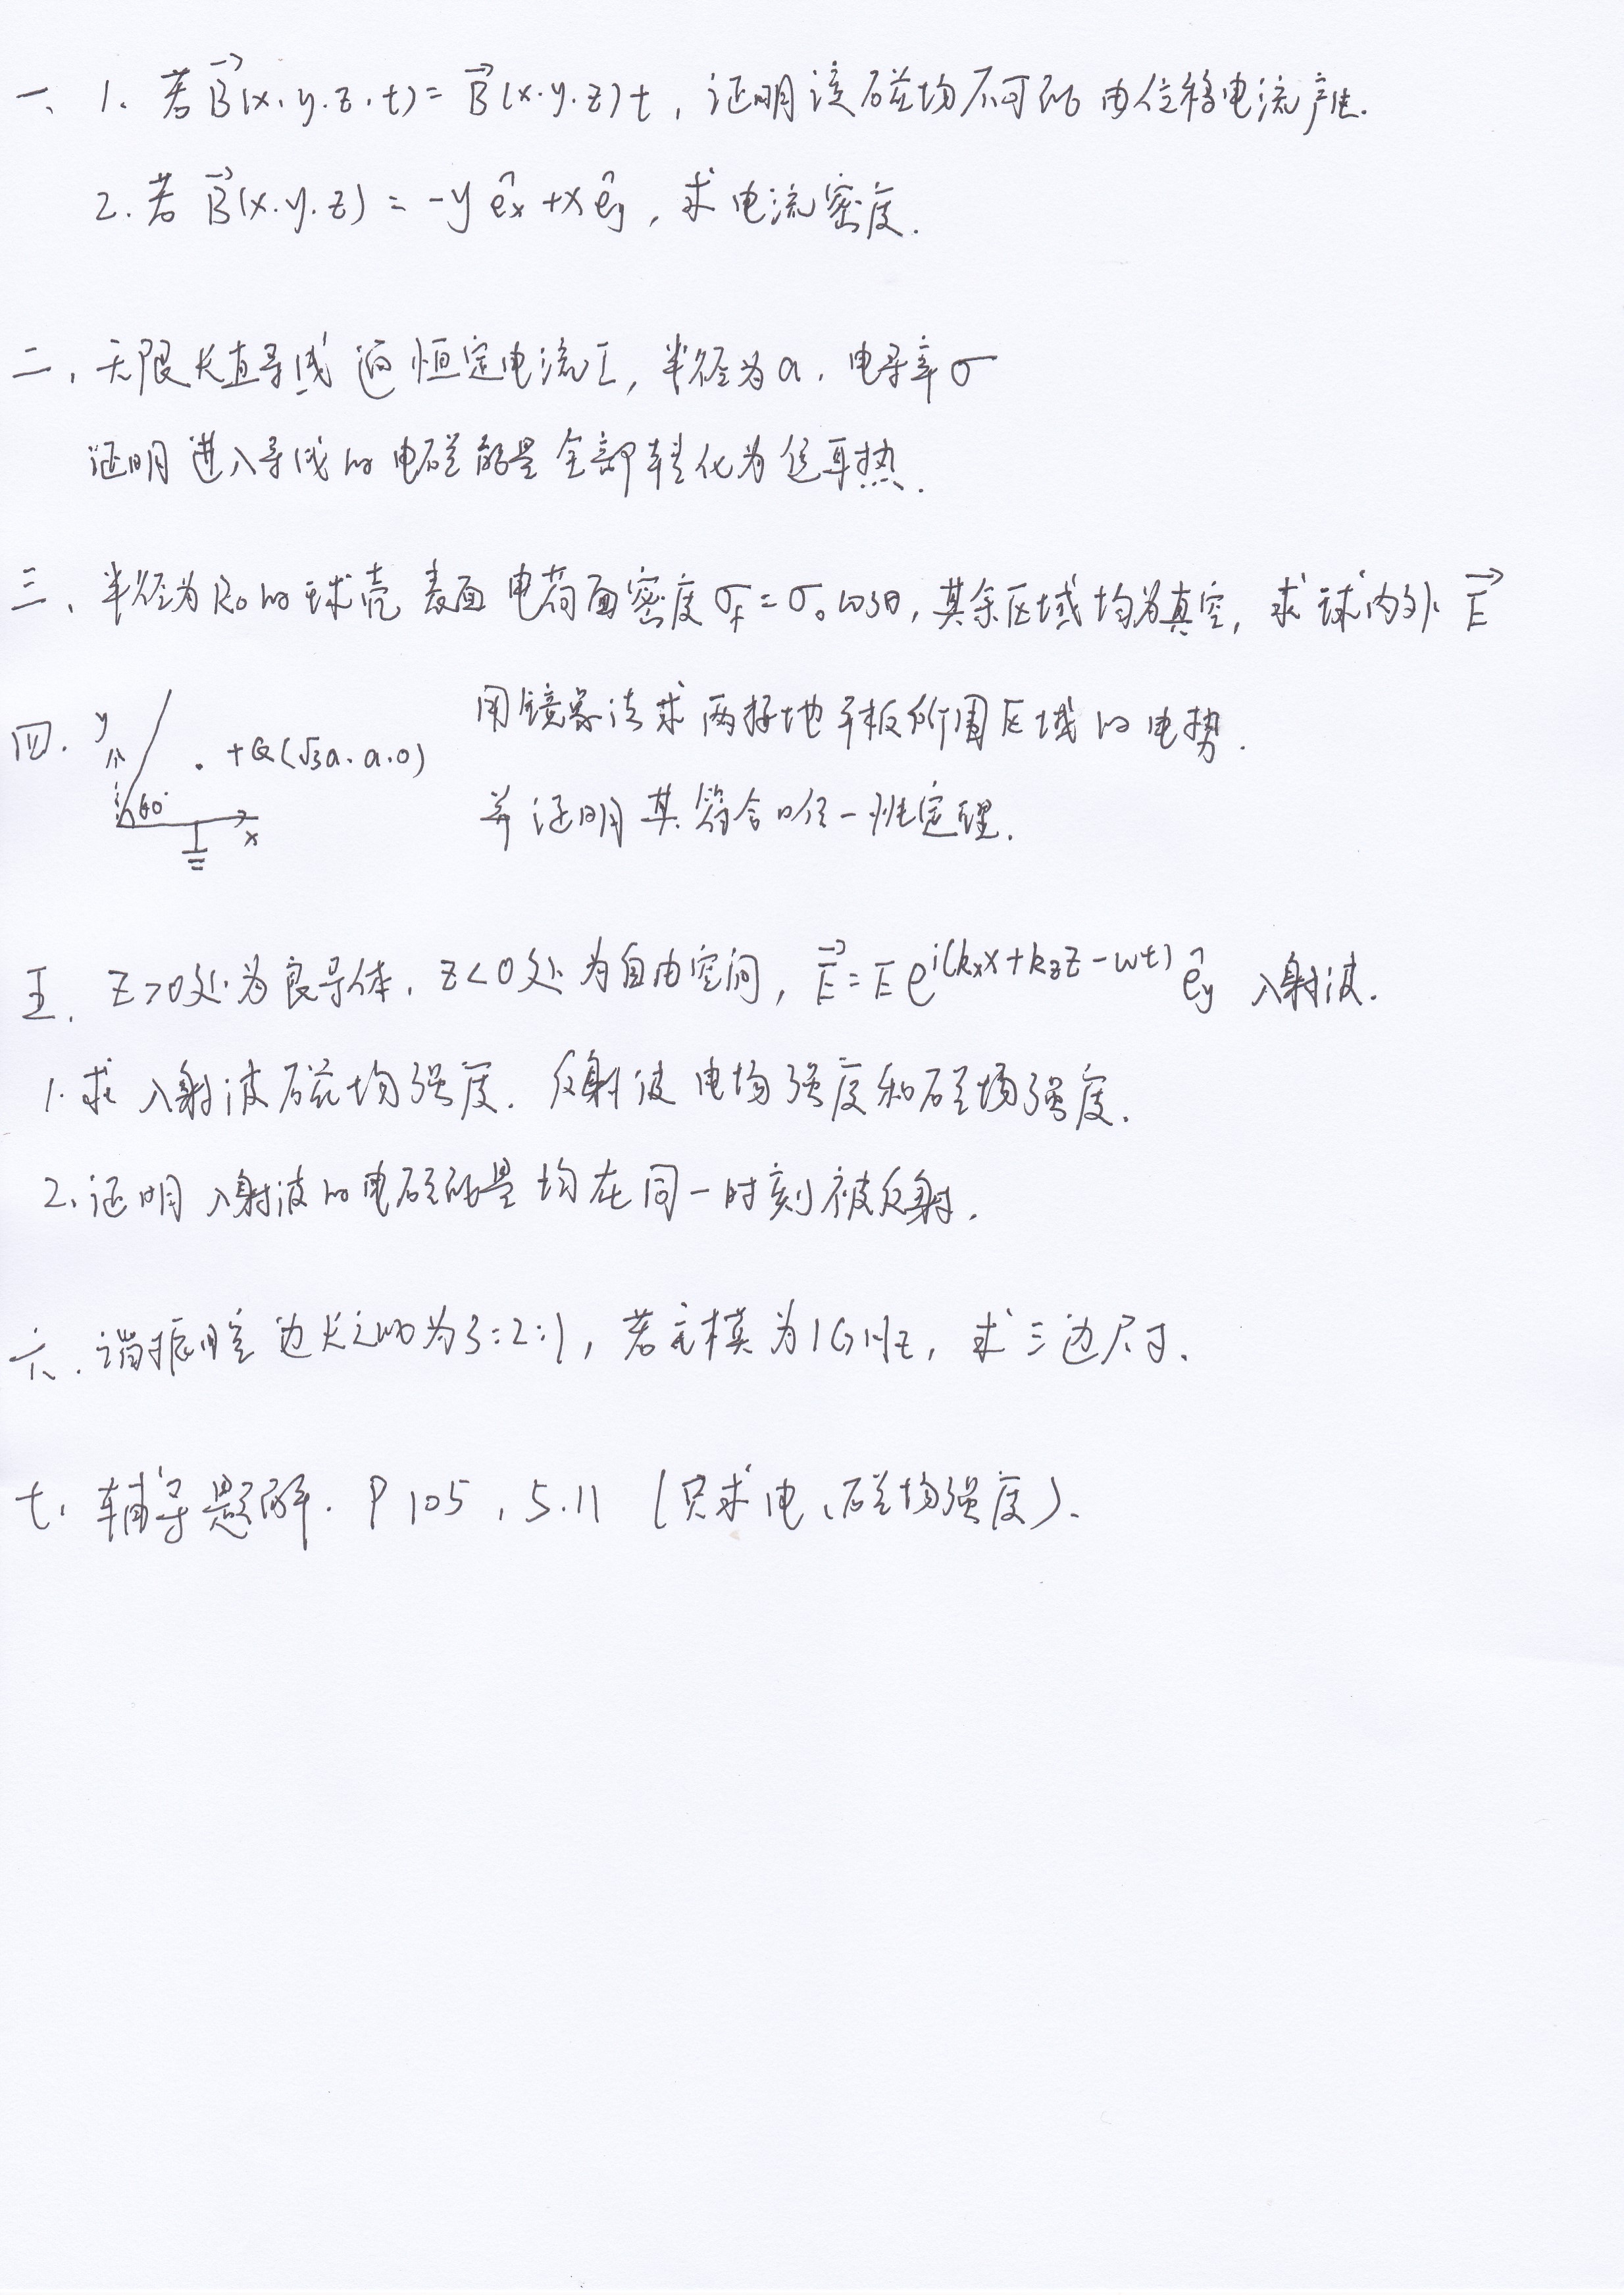 一、1. 若B⃗(x.y.z.t)=B⃗(x.y.z)t，证明该磁场不可能由位移电流产生.
2. 若B⃗(x.y.z)=-yêx+xêy，求电流密度.
二、无限长直导线通恒定电流I，半径为a，电导率σ
证明进入导线的电磁能量全部转化为焦耳热.
三、半径为R₀的球壳表面电荷面密度σf=σ₀cosθ，其余区域均为真空，求球内外E⃗
四. y 60° x +Q(√3a.a.0) 用镜象法求两接地平板所围区域的电势.
并证明其符合唯一性定理.
五. z>0处为良导体，z<0处为自由空间，E⃗=Ee^i(kxx+kzz-wt)êy 入射波.
1.求入射波磁场强度. 反射波电场强度和磁场强度.
2.证明入射波的电磁能量均在同一时刻被反射.
六. 谐振腔边长之比为3:2:1，若主模为1GHz，求三边尺寸.
七、辅导题解. P105，5.11（只求电、磁场强度）.